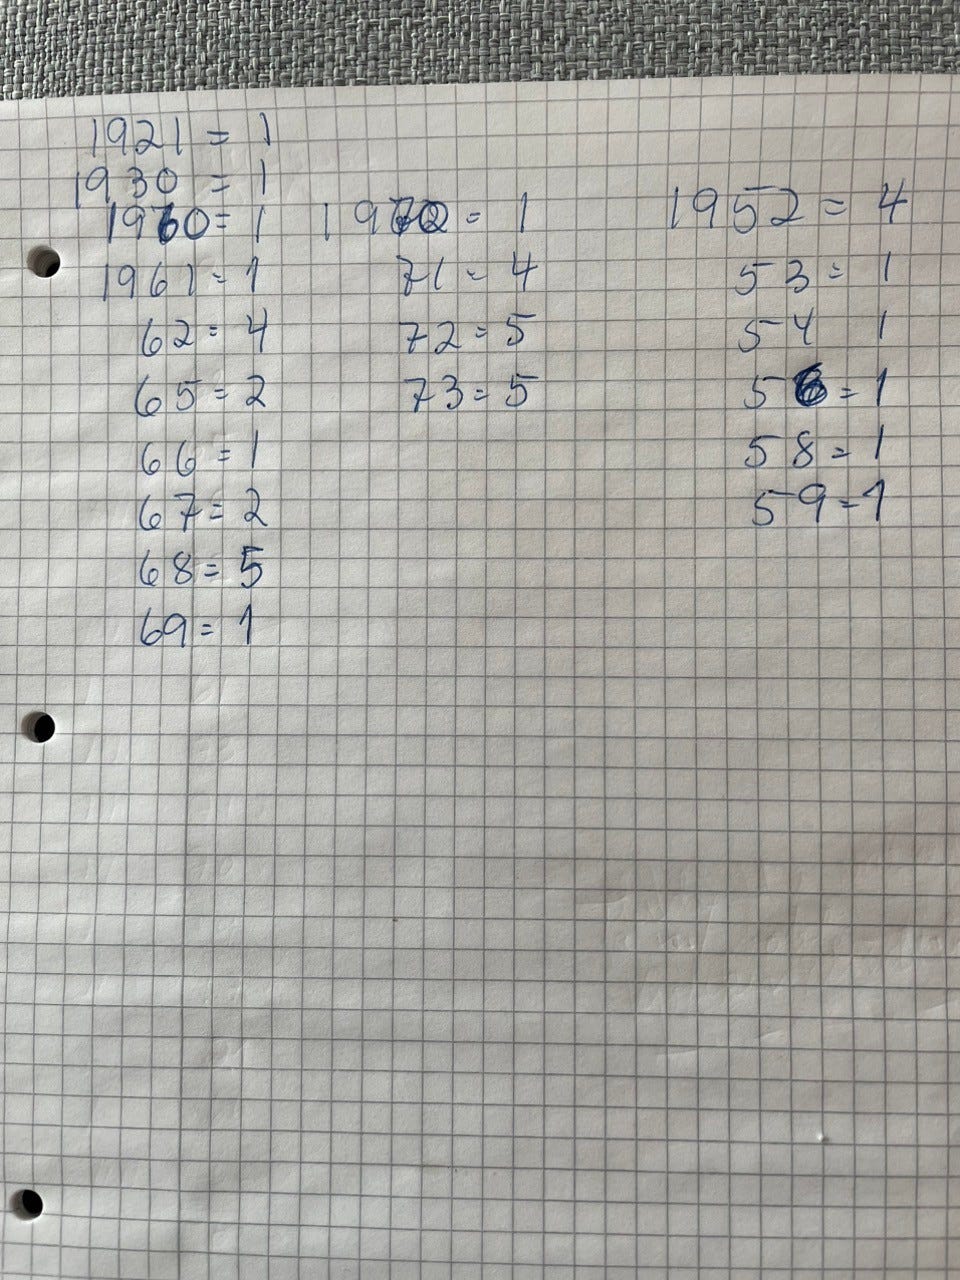 1921 = 1
1930 = 1
1960 = 1
1961 = 1
62 = 4
65 = 2
66 = 1
67 = 2
68 = 5
69 = 1
1970 = 1
71 = 4
72 = 5
73 = 5
1952 = 4
53 = 1
54 1
56 = 1
58 = 1
59 = 1